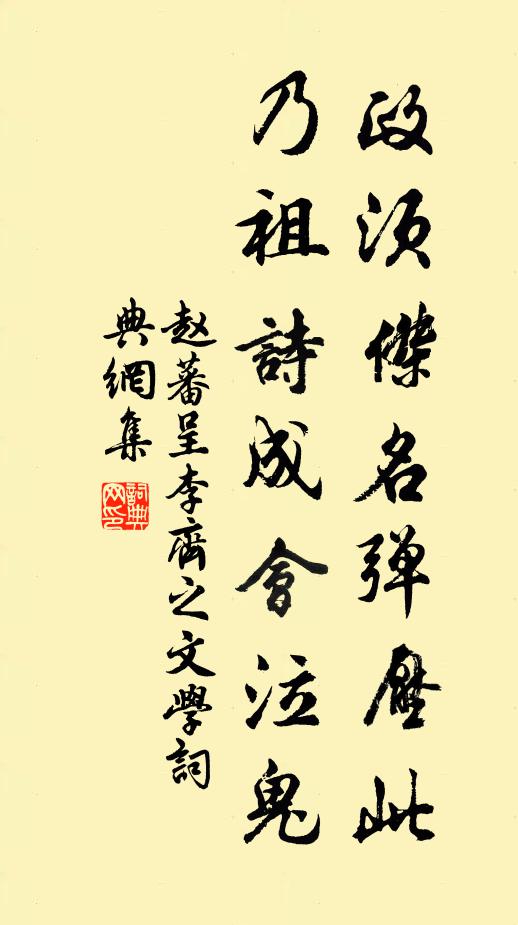 政须傑名弹壓此
乃祖詩成會泣鬼
赵蕃呈李齊之文學詞
典網集
詞典
网印